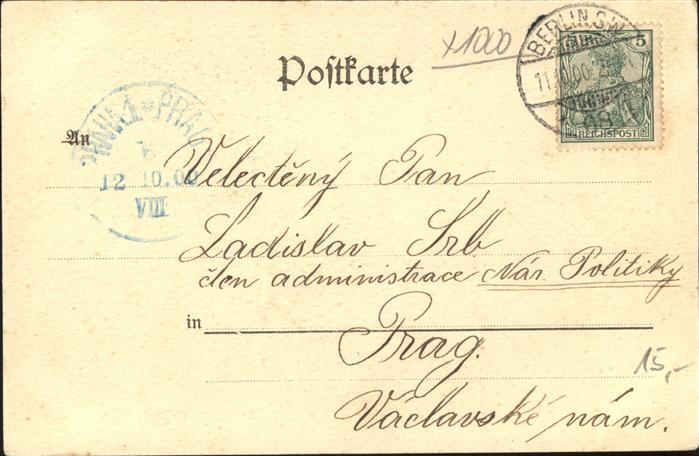 x1000
BERLIN S.W.
11.10.00
5
REICHSPOST
Postkarte
PRAHA 1 PRAG
12 10.00
VIII
An
Velectěný Pan
Ladislav Srb
člen administrace Nár. Politiky
in
Prag.
15,-
Václavské nám.